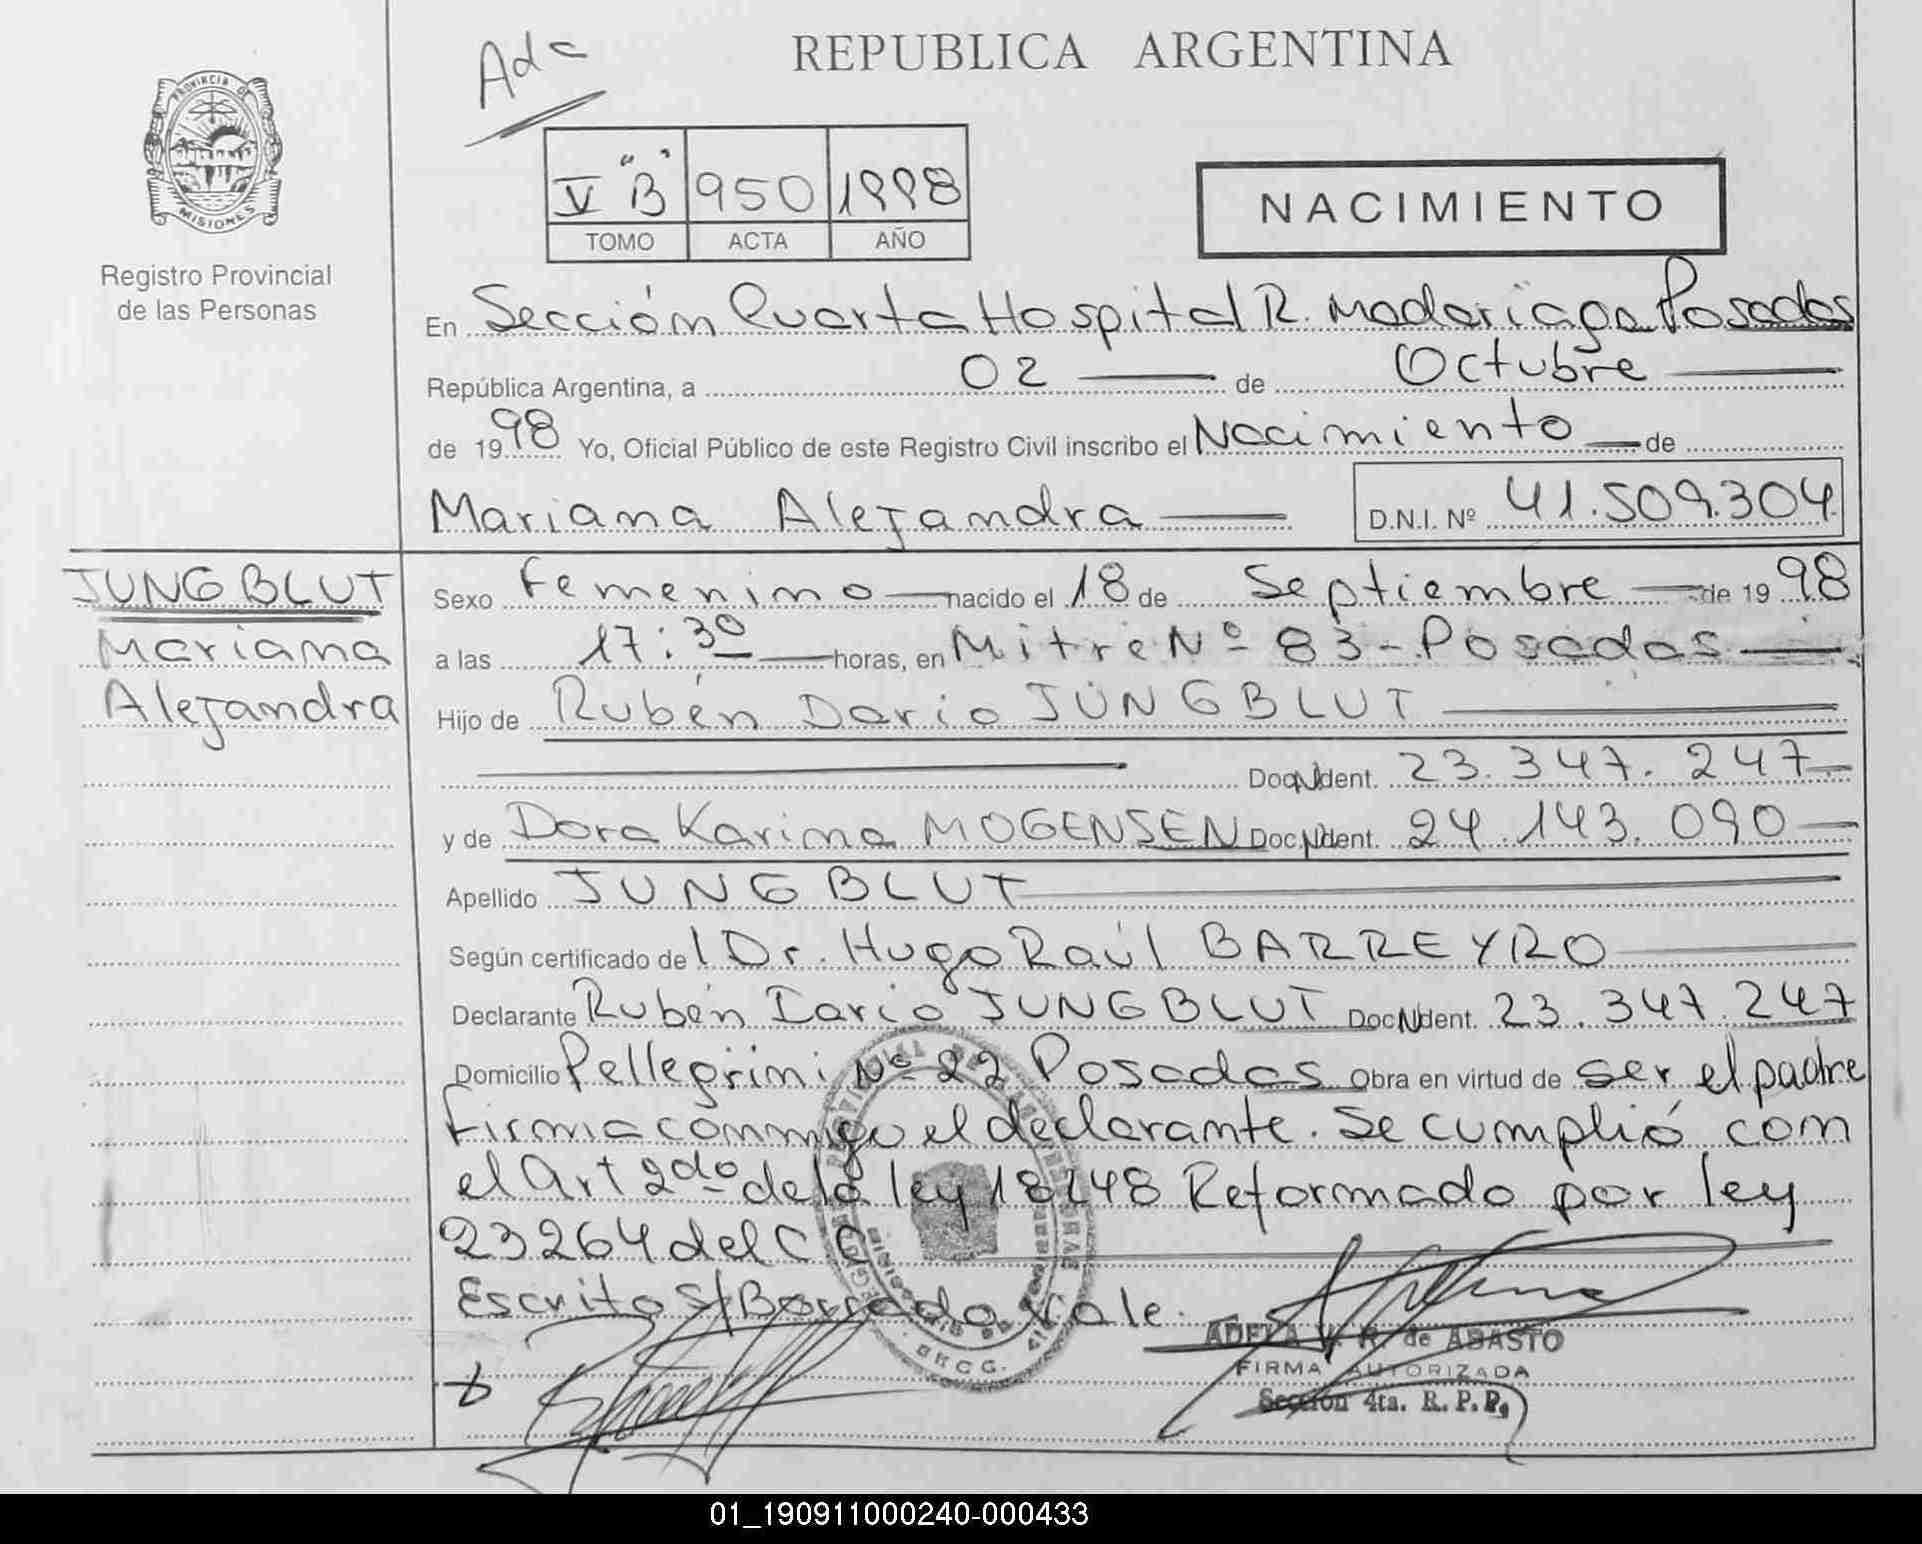 Adc
REPUBLICA ARGENTINA
PROVINCIA DE
MISIONES
Registro Provincial
de las Personas
V "B" 950 1998
TOMO ACTA AÑO
NACIMIENTO
En Sección Cuarta Hospital R. Madariaga Posadas
República Argentina, a 02 de Octubre
de 1998 Yo, Oficial Público de este Registro Civil inscribo el Nacimiento de
Mariana Alejandra D.N.I. Nº 41.509.304
JUNGBLUT
Mariana
Alejandra
Sexo Femenino nacido el 18 de Septiembre de 1998
a las 17:30 horas, en Mitre Nº 83 - Posadas
Hijo de Rubén Dario JUNGBLUT
Doc. Ident. 23.347.247
y de Dora Karina MOGENSEN Doc. Ident. 24.143.090
Apellido JUNGBLUT
Según certificado del Dr. Hugo Raúl BARREYRO
Declarante Rubén Dario JUNGBLUT Doc. Ident. 23.347.247
Domicilio Pellegrini Nº 22 Posadas Obra en virtud de ser el padre
firma conmigo el declarante. Se cumplió con
el Art 2do de la ley 18248 Reformado por ley
23264 del C C
Escrito S/Borrado Vale.
ADELA V. R. de ABASTO
FIRMA AUTORIZADA
Sección 4ta. R. P. P.
01_190911000240-000433